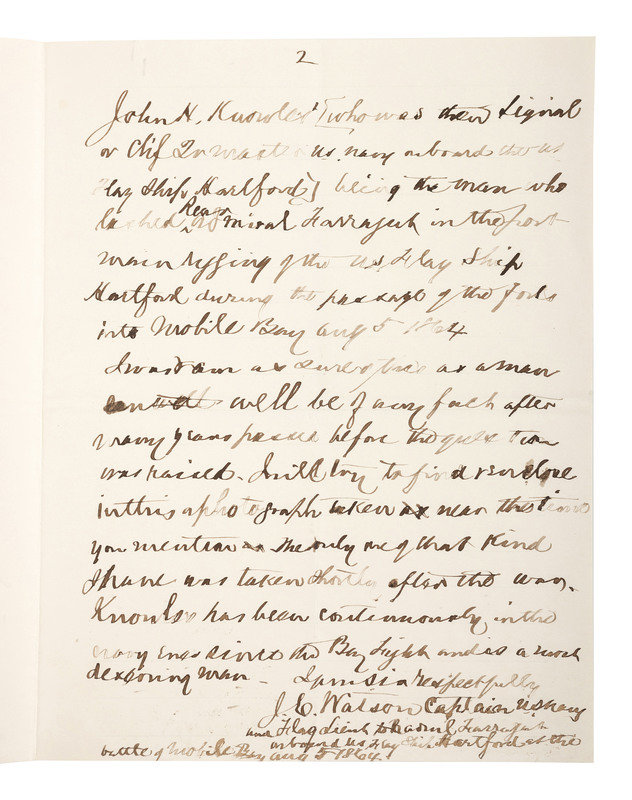 2
John H. Knowles [who was then Signal
or Chf Qr master U.S. navy onboard the U.S.
Flag Ship Hartford] being the man who
lashed Rear Admiral Farragut in the port
main rigging of the U.S. Flag Ship
Hartford during the passage of the forts
into Mobile Bay Aug 5 1864
I am as sure of this as a man
can well be of any fact after
many years passed before the question
was raised. I will try to find & enclose
in this a photograph taken as near the time
you mention as the only one of that kind
I have was taken shortly after the war.
Knowles has been continuously in the
navy ever since the Bay fight and is a most
deserving man - I am Sir respectfully
J. C. Watson Captain U.S. Navy
and Flag Lieut to Admiral Farragut
onboard U.S. Flag Ship Hartford at the
battle of Mobile Bay Aug 5 1864